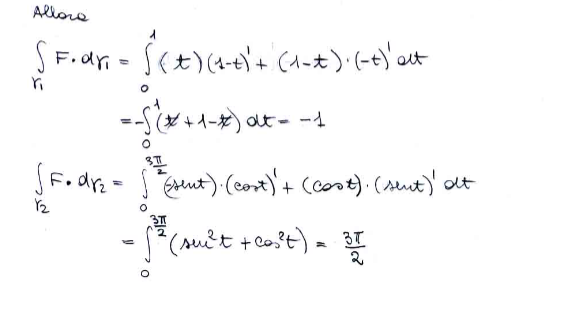 Allora
∫_{γ₁} F · dγ₁ = ∫₀¹ (t)(1-t)' + (1-t)·(-t)' dt
= -∫₀¹ (t + 1-t) dt = -1
∫_{γ₂} F · dγ₂ = ∫₀^{3π/2} (-sent)·(cost)' + (cost)·(sent)' dt
= ∫₀^{3π/2} (sen²t + cos²t) = 3π/2